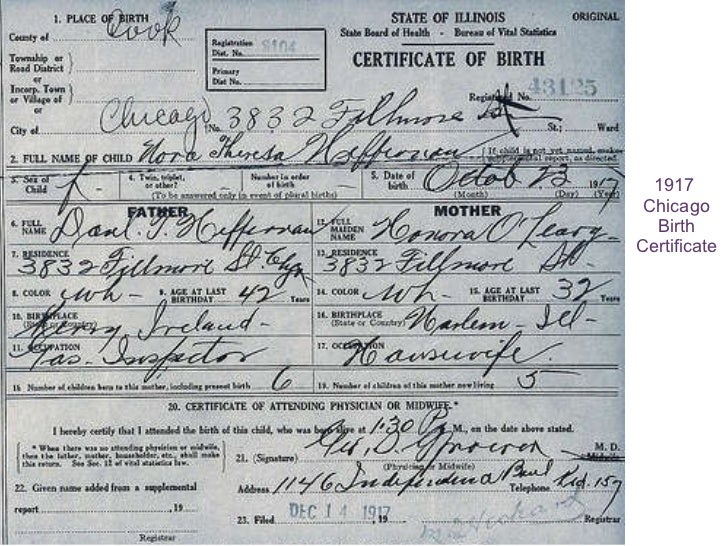 1. PLACE OF BIRTH
STATE OF ILLINOIS
ORIGINAL
County of Cook
State Board of Health - Bureau of Vital Statistics
Registration
Dist. No. 8104
CERTIFICATE OF BIRTH
Township or
Road District
or
Incorp. Town
or Village of
or
Primary
Dist No.
Registered No. 43125
City of Chicago No. 3832 Fillmore St St.; Ward
2. FULL NAME OF CHILD Nora Theresa Heffernan
If child is not yet named, make
supplemental report, as directed.
3. Sex of
Child f
4. Twin, triplet,
or other?
Number in order
of birth
(To be answered only in event of plural births)
5. Date of
birth Octob 23 1917
(Month) (Day) (Year)
FATHER
MOTHER
6. FULL
NAME Danl. J. Heffernan
12. FULL
MAIDEN
NAME Honora O'Leary
7. RESIDENCE
3832 Fillmore St.
13. RESIDENCE
3832 Fillmore St-
8. COLOR Wh-
9. AGE AT LAST
BIRTHDAY 42 Years
14. COLOR Wh-
15. AGE AT LAST
BIRTHDAY 32 Years
10. BIRTHPLACE
(State or Country) Kerry Ireland-
16. BIRTHPLACE
(State or Country) Harlem- Ill-
11. OCCUPATION
Gas-Inspector
17. OCCUPATION
Housewife.
18 Number of children born to this mother, including present birth 6
19. Number of children of this mother now living 5
20. CERTIFICATE OF ATTENDING PHYSICIAN OR MIDWIFE.*
I hereby certify that I attended the birth of this child, who was born alive at 1:30 P. M., on the date above stated.
* When there was no attending physician or midwife,
then the father, mother, householder, etc., shall make
this return. See Sec. 12 of vital statistics law.
21. (Signature) Geo. D. M. D.
Midwife
(Physician or Midwife)
22. Given name added from a supplemental
Address 1146 Independence Boul Telephone Ked. 157
report , 19
23. Filed DEC 14 1917, 19
Registrar
Registrar
1917
Chicago
Birth
Certificate